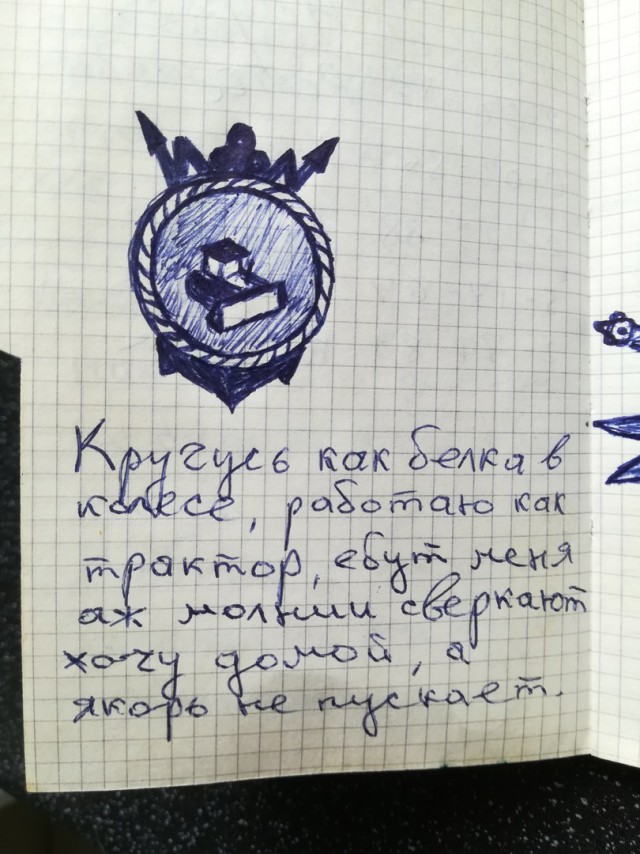 Кругусь как белка в
колесе, работаю как
трактор, ебут меня
аж молнии сверкают
хочу домой, а
якорь не пускает.